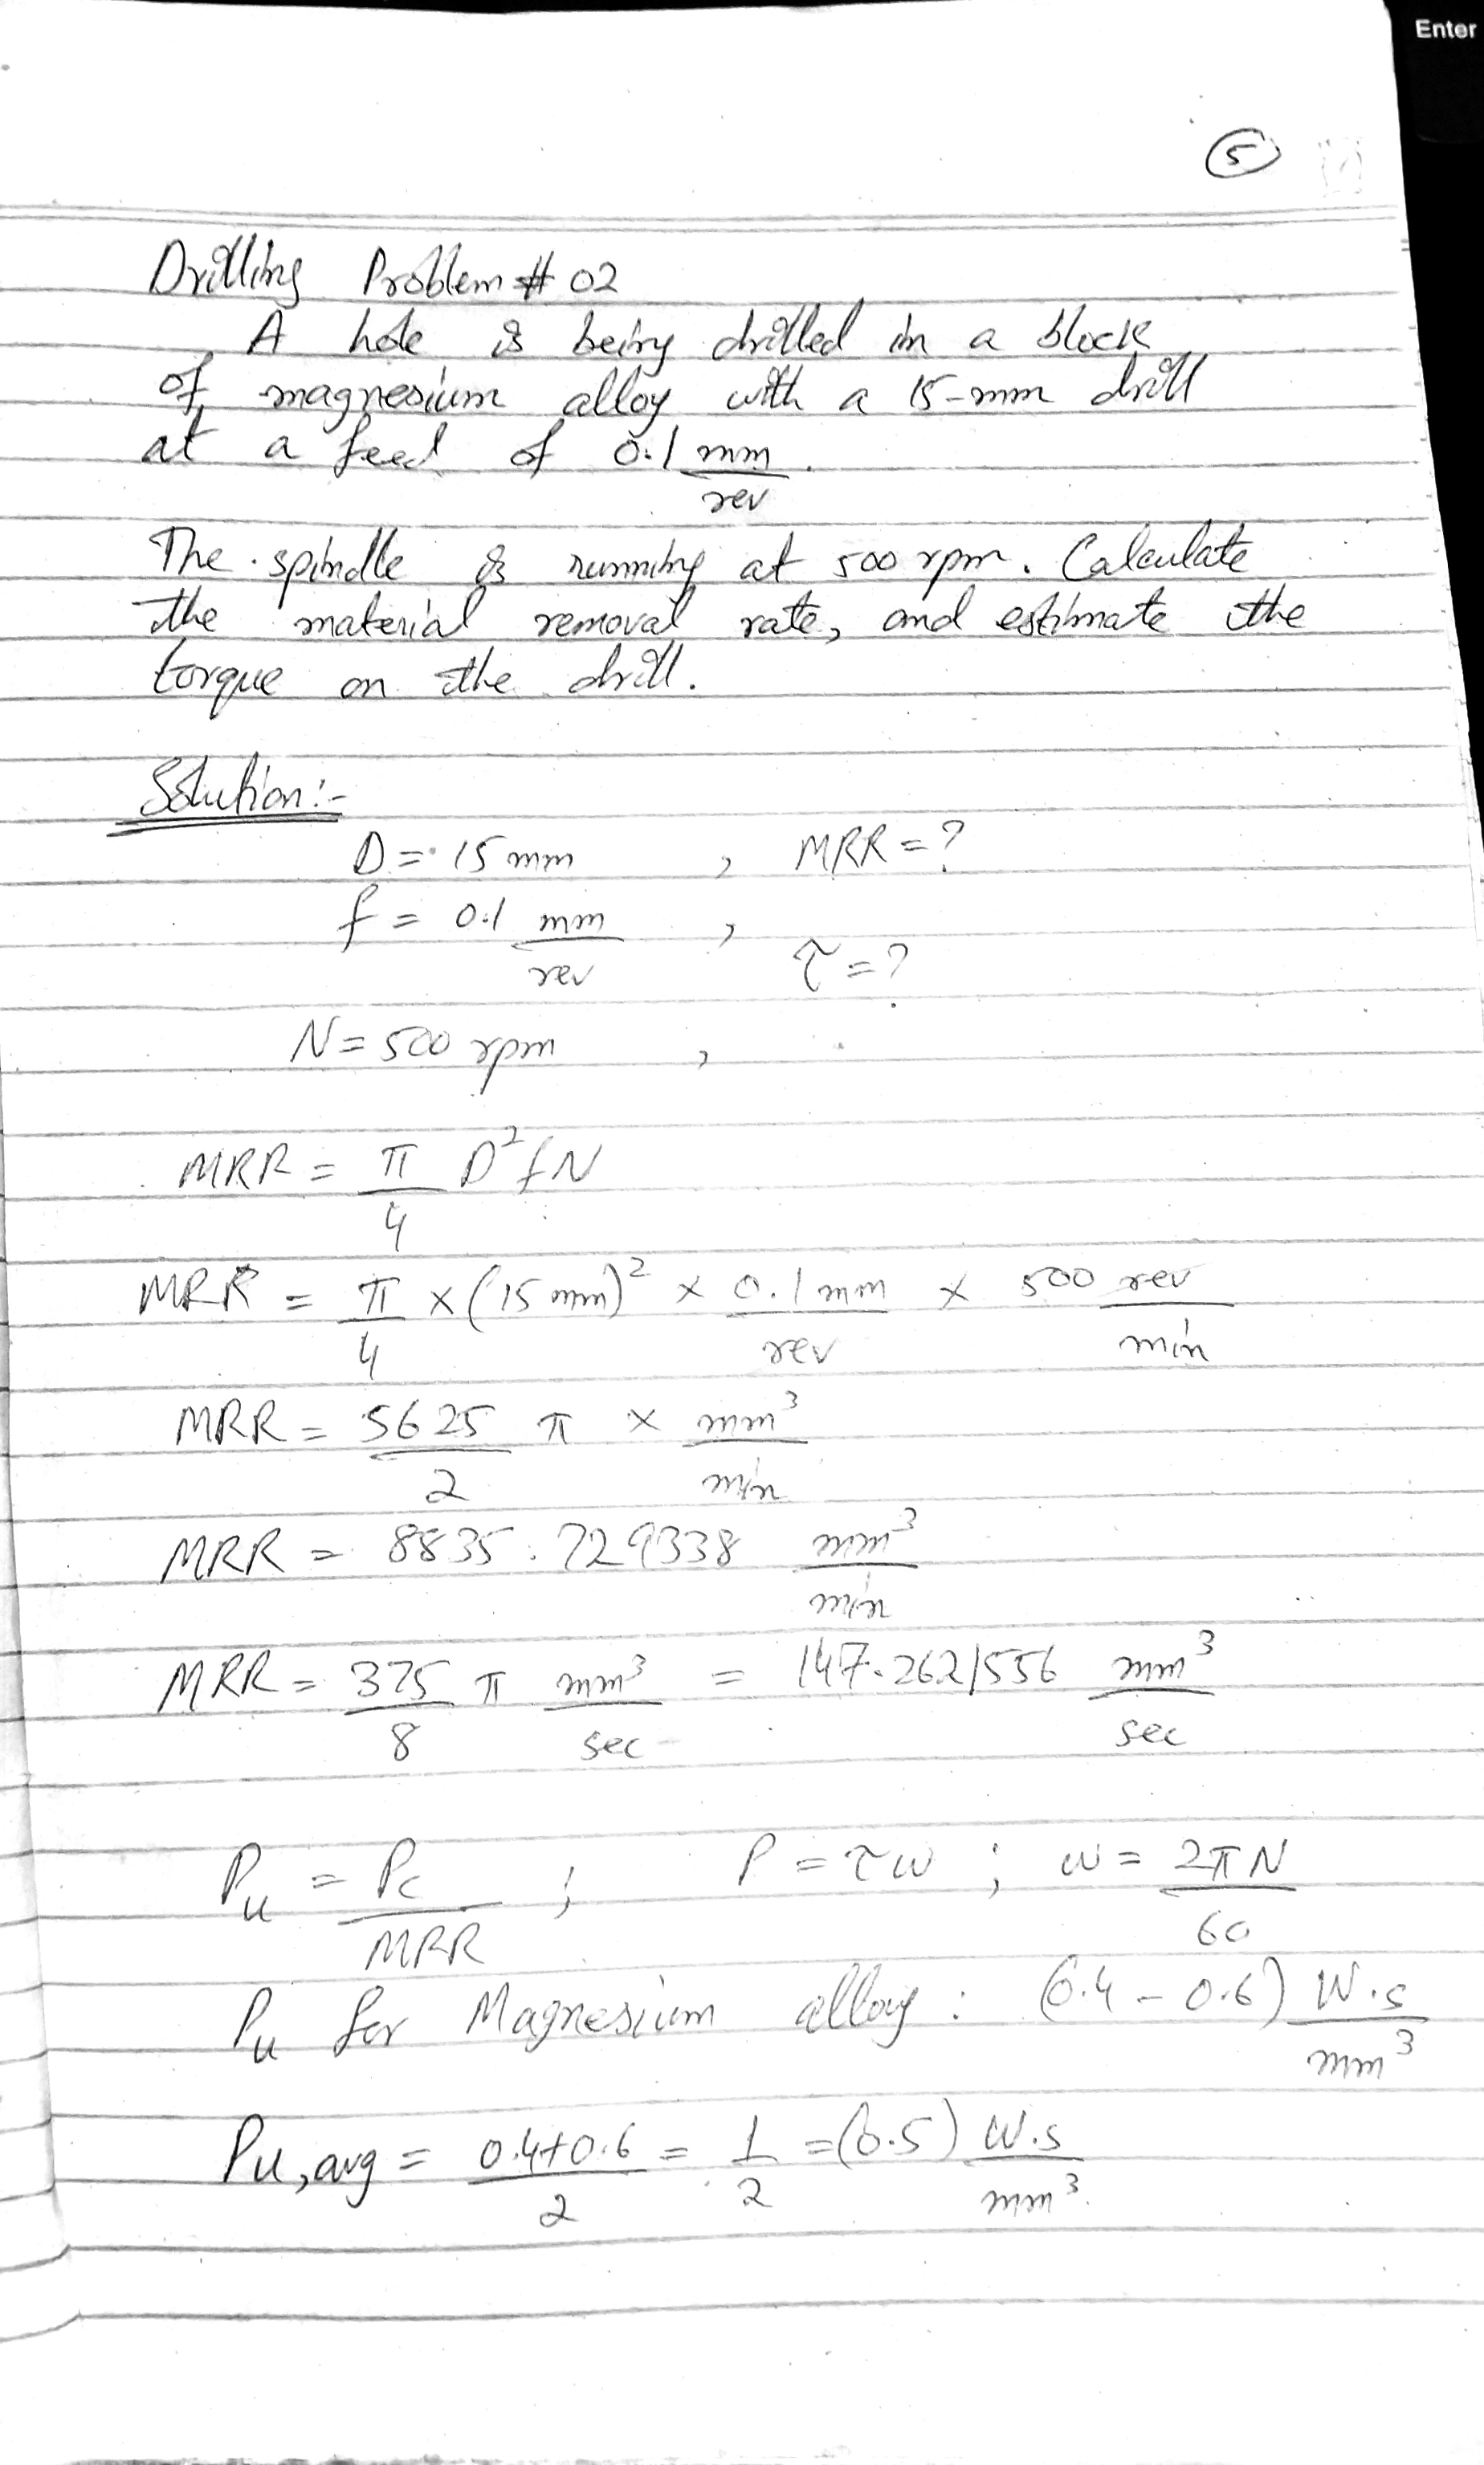 Enter
5
Drilling Problem # 02
A hole is being drilled in a block
of magnesium alloy with a 15-mm drill
at a feed of 0.1 mm/rev.
The spindle is running at 500 rpm. Calculate
the material removal rate, and estimate the
torque on the drill.
Solution:-
D = 15 mm , MRR = ?
f = 0.1 mm/rev , τ = ?
N = 500 rpm ,
MRR = π/4 D² f N
MRR = π/4 × (15 mm)² × 0.1 mm/rev × 500 rev/min
MRR = 5625/2 π × mm³/min
MRR = 8835.729338 mm³/min
MRR = 375/8 π mm³/sec = 147.2621556 mm³/sec
Pu = Pc/MRR ; P = τω ; ω = 2πN/60
Pu for Magnesium alloy : (0.4 - 0.6) W.s/mm³
Pu,avg = 0.4+0.6/2 = 1/2 = (0.5) W.s/mm³